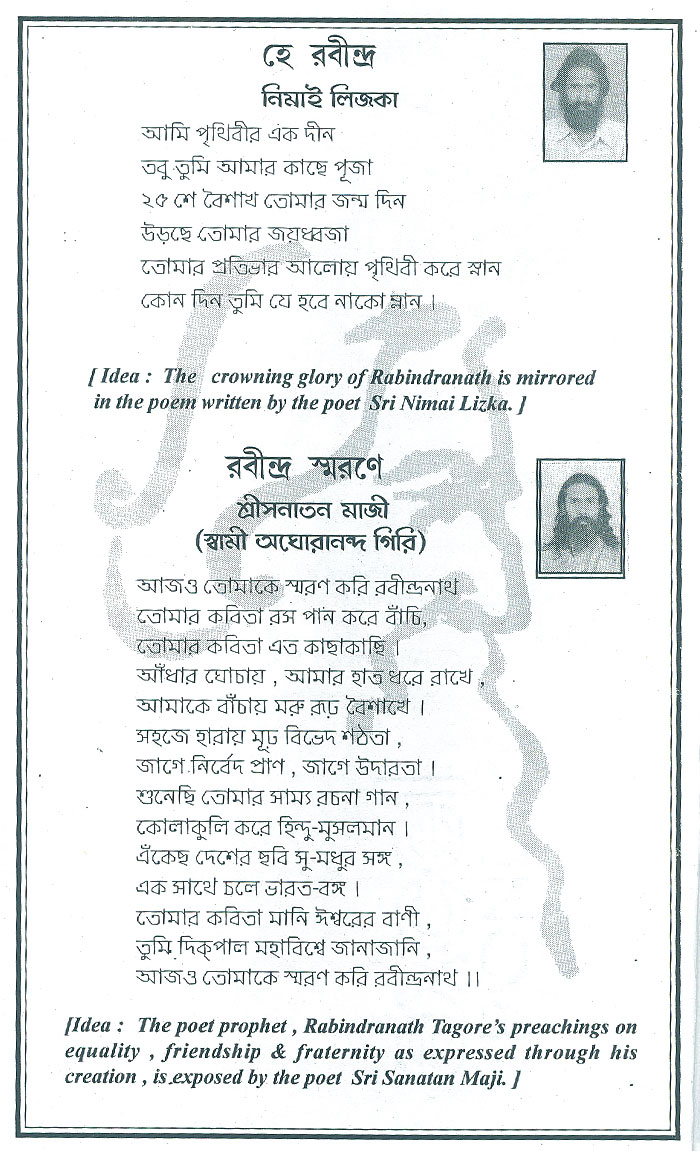 হে রবীন্দ্র
নিমাই লিজকা
আমি পৃথিবীর এক দীন
তবু তুমি আমার কাছে পূজা
২৫ শে বৈশাখ তোমার জন্ম দিন
উড়ছে তোমার জয়ধ্বজা
তোমার প্রতিভার আলোয় পৃথিবী করে স্নান
কোন দিন তুমি যে হবে নাকো ম্লান ।
[ Idea : The crowning glory of Rabindranath is mirrored
in the poem written by the poet Sri Nimai Lizka. ]
রবীন্দ্র স্মরণে
শ্রীসনাতন মাজী
(স্বামী অঘোরানন্দ গিরি)
আজও তোমাকে স্মরণ করি রবীন্দ্রনাথ
তোমার কবিতা রস পান করে বাঁচি,
তোমার কবিতা এত কাছাকাছি ।
আঁধার ঘোচায় , আমার হাত ধরে রাখে ,
আমাকে বাঁচায় মরু রূঢ় বৈশাখে ।
সহজে হারায় মূঢ় বিভেদ শঠতা ,
জাগে নির্বেদ প্রাণ , জাগে উদারতা ।
শুনেছি তোমার সাম্য রচনা গান ,
কোলাকুলি করে হিন্দু-মুসলমান ।
এঁকেছ দেশের ছবি সু-মধুর সঙ্গ ,
এক সাথে চলে ভারত-বঙ্গ ।
তোমার কবিতা মানি ঈশ্বরের বাণী ,
তুমি দিক্‌পাল মহাবিশ্বে জানাজানি ,
আজও তোমাকে স্মরণ করি রবীন্দ্রনাথ ।।
[Idea : The poet prophet , Rabindranath Tagore's preachings on
equality , friendship & fraternity as expressed through his
creation , is exposed by the poet Sri Sanatan Maji. ]